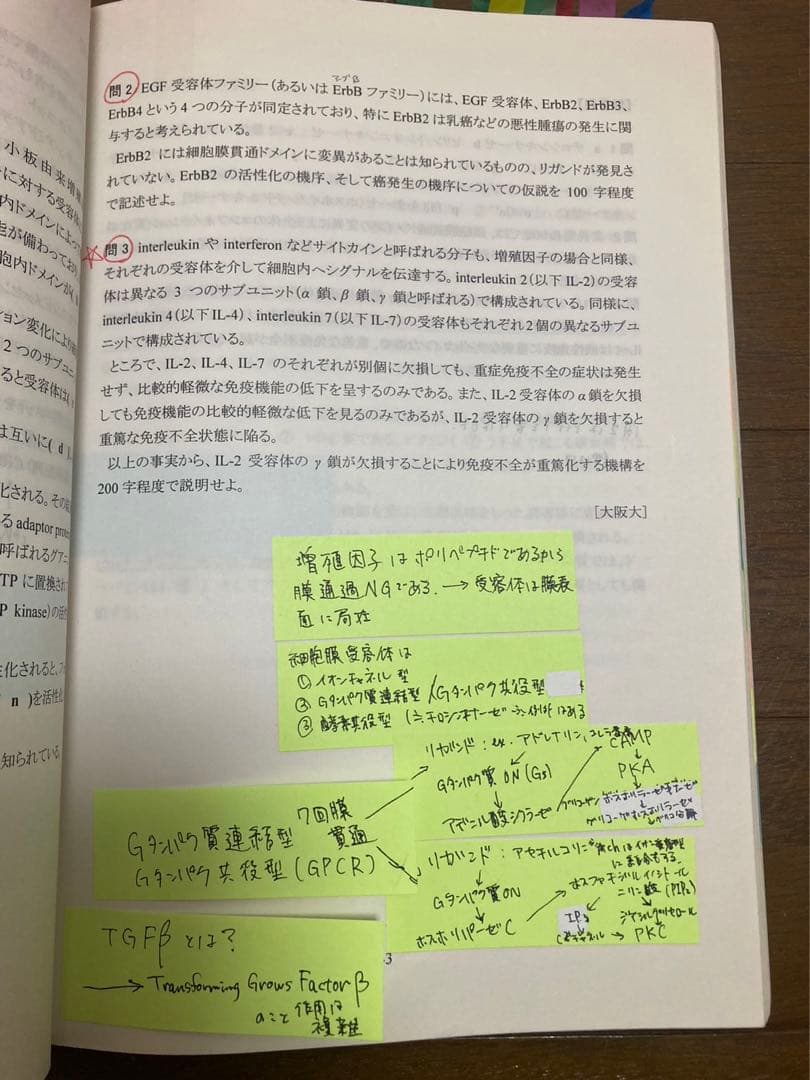 小板由来増
に対する受容体
内ドメインによっ
が備わってお
胞内ドメインが(
ション変化により
2 つのサブユニ
ると受容体は(
は互いに( d )
化される。その
る adaptor prote
呼ばれるグアニ
TP に置換され
P kinase)の活
性化されると、
n )を活性化
知られている
マブβ
問2 EGF 受容体ファミリー(あるいは ErbB ファミリー)には、EGF 受容体、ErbB2、ErbB3、
ErbB4 という 4 つの分子が同定されており、特に ErbB2 は乳癌などの悪性腫瘍の発生に関
与すると考えられている。
ErbB2 には細胞膜貫通ドメインに変異があることは知られているものの、リガンドが発見さ
れていない。ErbB2 の活性化の機序、そして癌発生の機序についての仮説を 100 字程度
で記述せよ。
問3 interleukin や interferon などサイトカインと呼ばれる分子も、増殖因子の場合と同様、
それぞれの受容体を介して細胞内へシグナルを伝達する。interleukin 2(以下 IL-2)の受容
体は異なる 3 つのサブユニット(α 鎖、β 鎖、γ 鎖と呼ばれる)で構成されている。同様に、
interleukin 4(以下 IL-4)、interleukin 7(以下 IL-7)の受容体もそれぞれ2個の異なるサブユ
ニットで構成されている。
ところで、IL-2、IL-4、IL-7 のそれぞれが別個に欠損しても、重症免疫不全の症状は発生
せず、比較的軽微な免疫機能の低下を呈するのみである。また、IL-2 受容体の α 鎖を欠損
しても免疫機能の比較的軽微な低下を見るのみであるが、IL-2 受容体の γ 鎖を欠損すると
重篤な免疫不全状態に陥る。
以上の事実から、IL-2 受容体の γ 鎖が欠損することにより免疫不全が重篤化する機構を
200 字程度で説明せよ。
[大阪大]
増殖因子はポリペプチドであるから
膜通過NGである. → 受容体は膜表
面に局在
細胞膜受容体は
① イオンチャネル型
② Gタンパク質連結型 / Gタンパク共役型
③ 酵素共役型 (≒チロシンキナーゼ 例外はある
リガンド : ex. アドレナリン, コレラ毒素
Gタンパク質 ON (Gs)
アデニル酸シクラーゼ
CAMP
PKA
グリコーゲンホスホリラーゼ
7回膜
貫通
Gタンパク質連結型
Gタンパク共役型 (GPCR)
リガンド : アセチルコリン
Gタンパク質ON
ホスホリパーゼC
ホスファチジルイノシトール
ニリン酸 (PIP₂)
IP₃
ジアシルグリセロール
PKC
TGFβ とは?
→ Transforming Grows Factor β
のこと 作用は
複雑
3